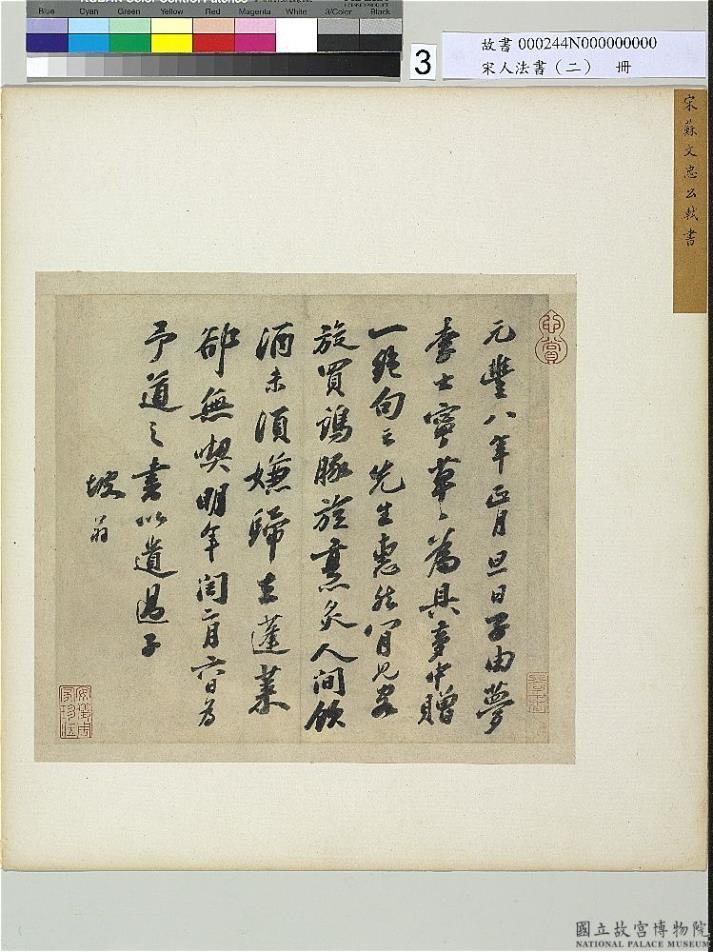 KODAK Color Control Patches
Blue Cyan Green Yellow Red Magenta White 3/Color Black
3
故書 000244N000000000
宋人法書（二） 冊
宋蘇文忠公軾書
元豐八年正月旦日子由夢
李士寧草〻為具夢中贈
一絕句云先生惠然肯見客
旋買鷄豚旋烹炙人間飲
酒未須嫌歸去蓬萊
卻無喫明年閏二月六日為
予道之書以遺過子
坡翁
國立故宮博物院
NATIONAL PALACE MUSEUM